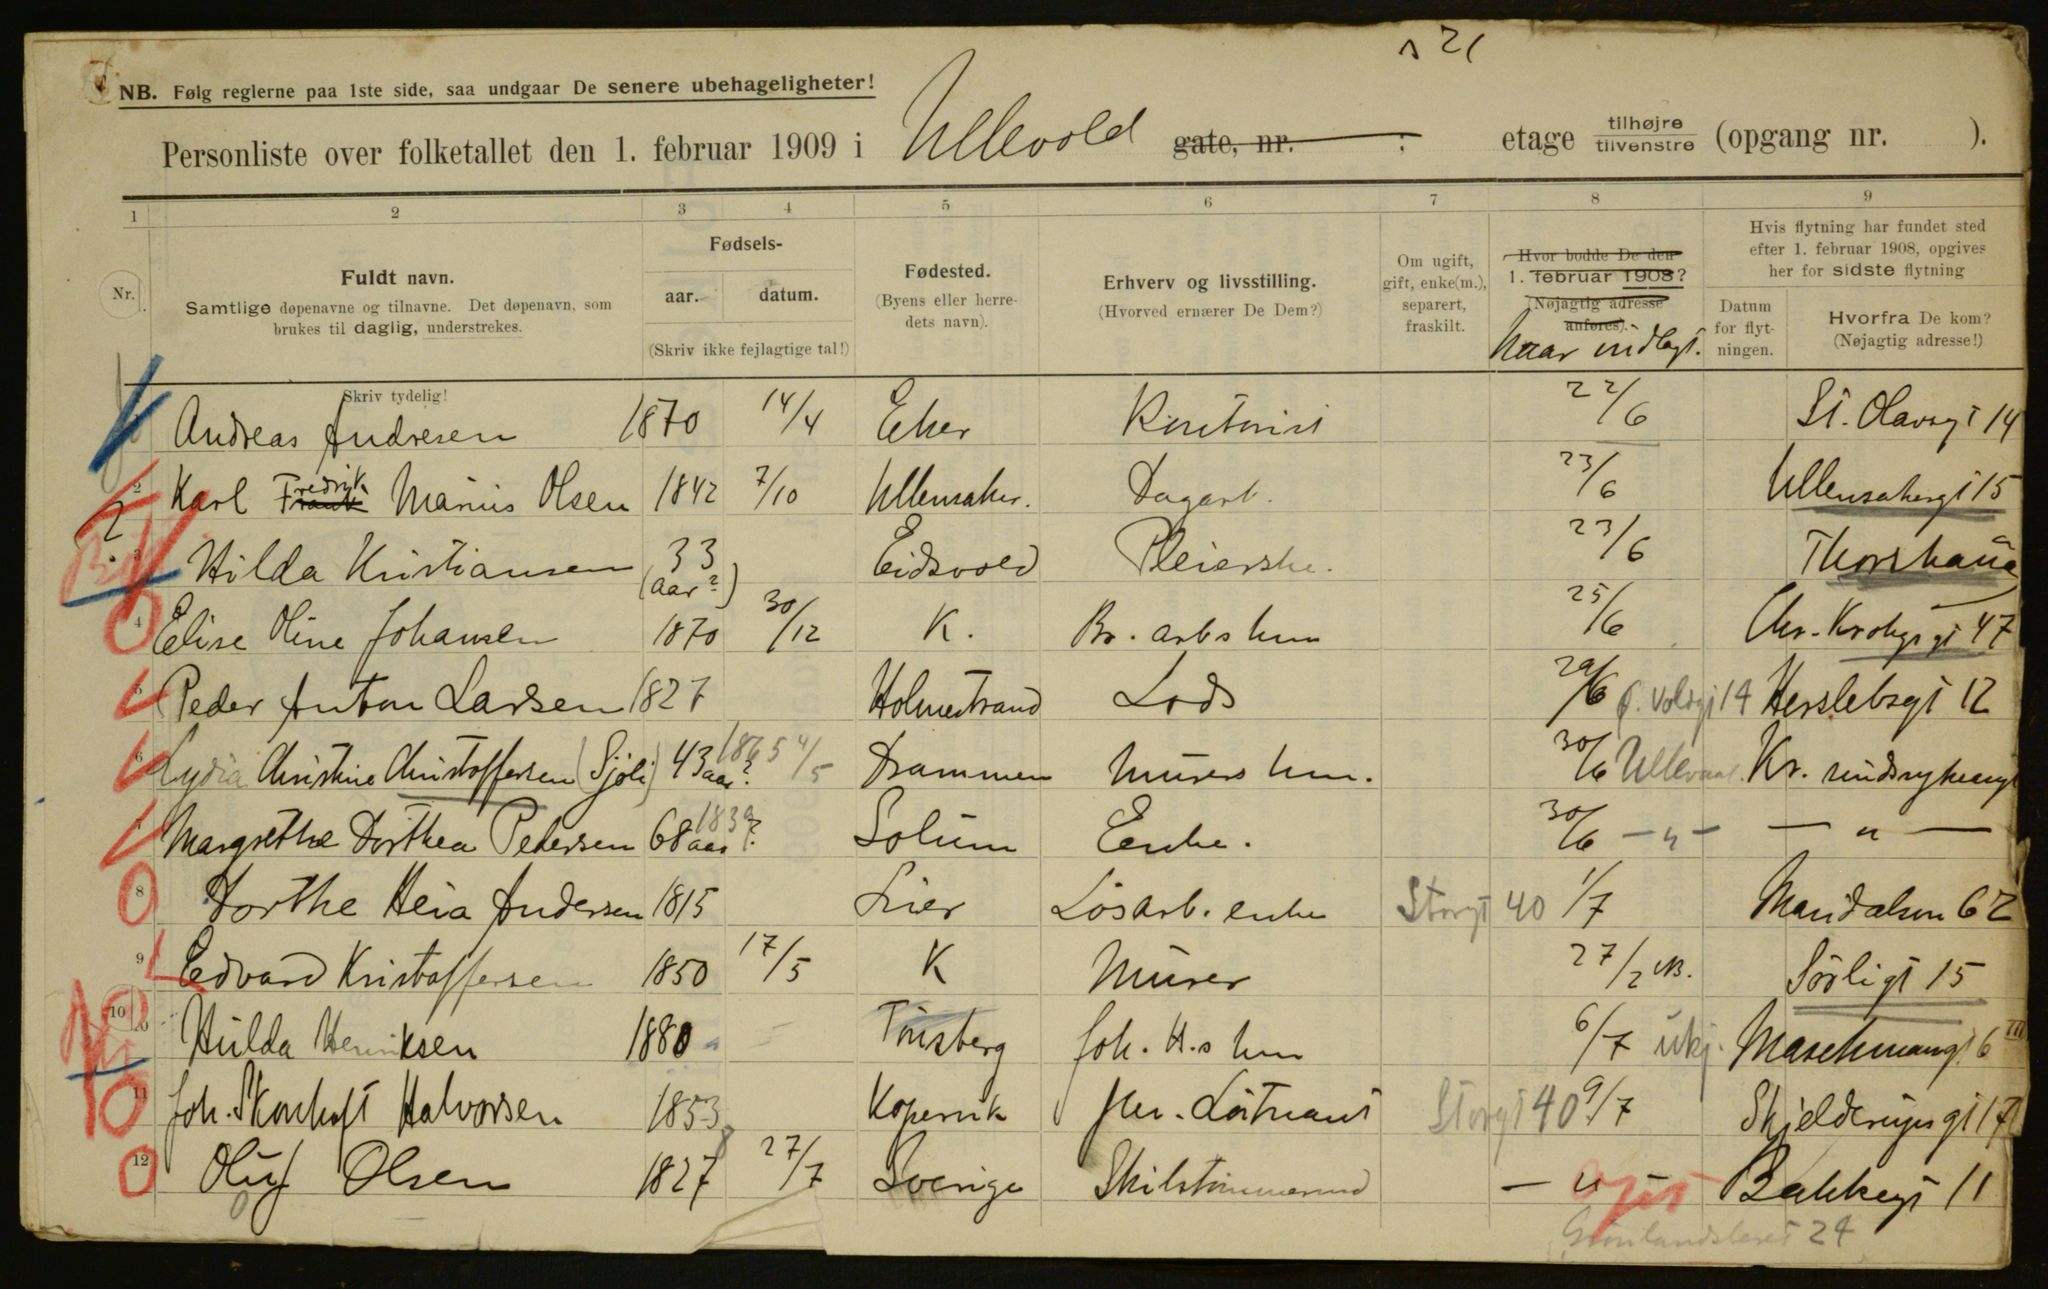 21
NB. Følg reglerne paa 1ste side, saa undgaar De senere ubehageligheter!
Personliste over folketallet den 1. februar 1909 i Ullevold gate, nr. : etage tilhøjre tilvenstre (opgang nr. ).
1 2 3 4 5 6 7 8 9
Nr.
Fuldt navn.
Samtlige døpenavne og tilnavne. Det døpenavn, som
brukes til daglig, understrekes.
Skriv tydelig!
Fødsels-
aar. datum.
(Skriv ikke fejlagtige tal!)
Fødested.
(Byens eller herre-
dets navn).
Erhverv og livsstilling.
(Hvorved ernærer De Dem?)
Om ugift,
gift, enke(m.),
separert,
fraskilt.
Hvor bodde De den
1. februar 1908?
(Nøjagtig adresse
anføres).
Naar indlagt.
Hvis flytning har fundet sted
efter 1. februar 1908, opgives
her for sidste flytning
Datum
for flyt-
ningen.
Hvorfra De kom?
(Nøjagtig adresse!)
Andreas Andresen 1870 14/4 Eker Kontorist 22/6 St. Olavsgt 14
2 Karl Frank Fredrik Marius Olsen 1842 7/10 Ullensaker. Dagarb. 23/6 Ullensakergt 15
3 Hilda Kristiansen 33 (aar?) Eidsvold Pleierske. 23/6 Thorshaug
4 Elise Oline Johansen 1870 30/12 K. Br. arbs hm 25/6 Chr. Krohgs gt 47
5 Peder Anton Larsen 1827 Holmestrand Lods 29/6 Voldgt 14 Herslebsgt 12
6 Lydia Christine Christoffersen (Sjøli) 43 aar? 1865 4/5 Drammen Murers hm. 30/6 Ullevaal. Kr.
7 Margrethe Dorthea Pedersen 68 aar? 1839 Solum Enke. 30/6 — " — — " —
8 Dorthe Heia Andersen 1815 Lier Løsarb. enke Storgt 40 1/7 Maridalsvn 62
9 Edvard Kristoffersen 1850 17/5 K Murer 27/2 NB. Sørligt 15
10 Hulda Henriksen 1880 Tønsberg Joh. H.s hm 6/7 ukj. Maschmannsgt 6 III
11 Joh. Skonhoft Halvorsen 1853 Kopervik Løitnant Storgt 40 9/7 Skjelderups gt 17
12 Oluf Olsen 1827 8 27/7 Sverige Skibstømmermand — " — Bakkegt 11
Grønlandsleret 24